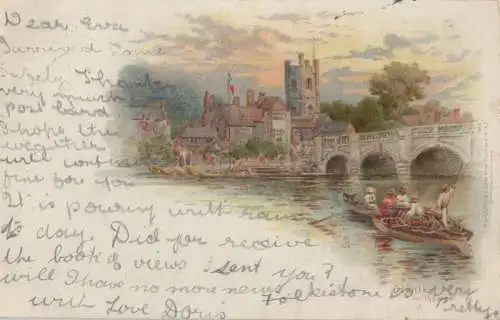 Dear Eva
Arrived
safely Thanks
very much
post card
I hope the
weather
will continue
fine for you
It is pouring with rain
to day. Did Joe receive
the book of views I sent you?
will I have no more news Folkestone is very
with Love Doris Pretty